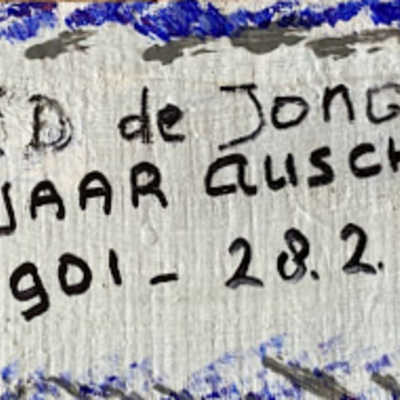 D de JONG
JAAR AUSCH
901 - 28.2.